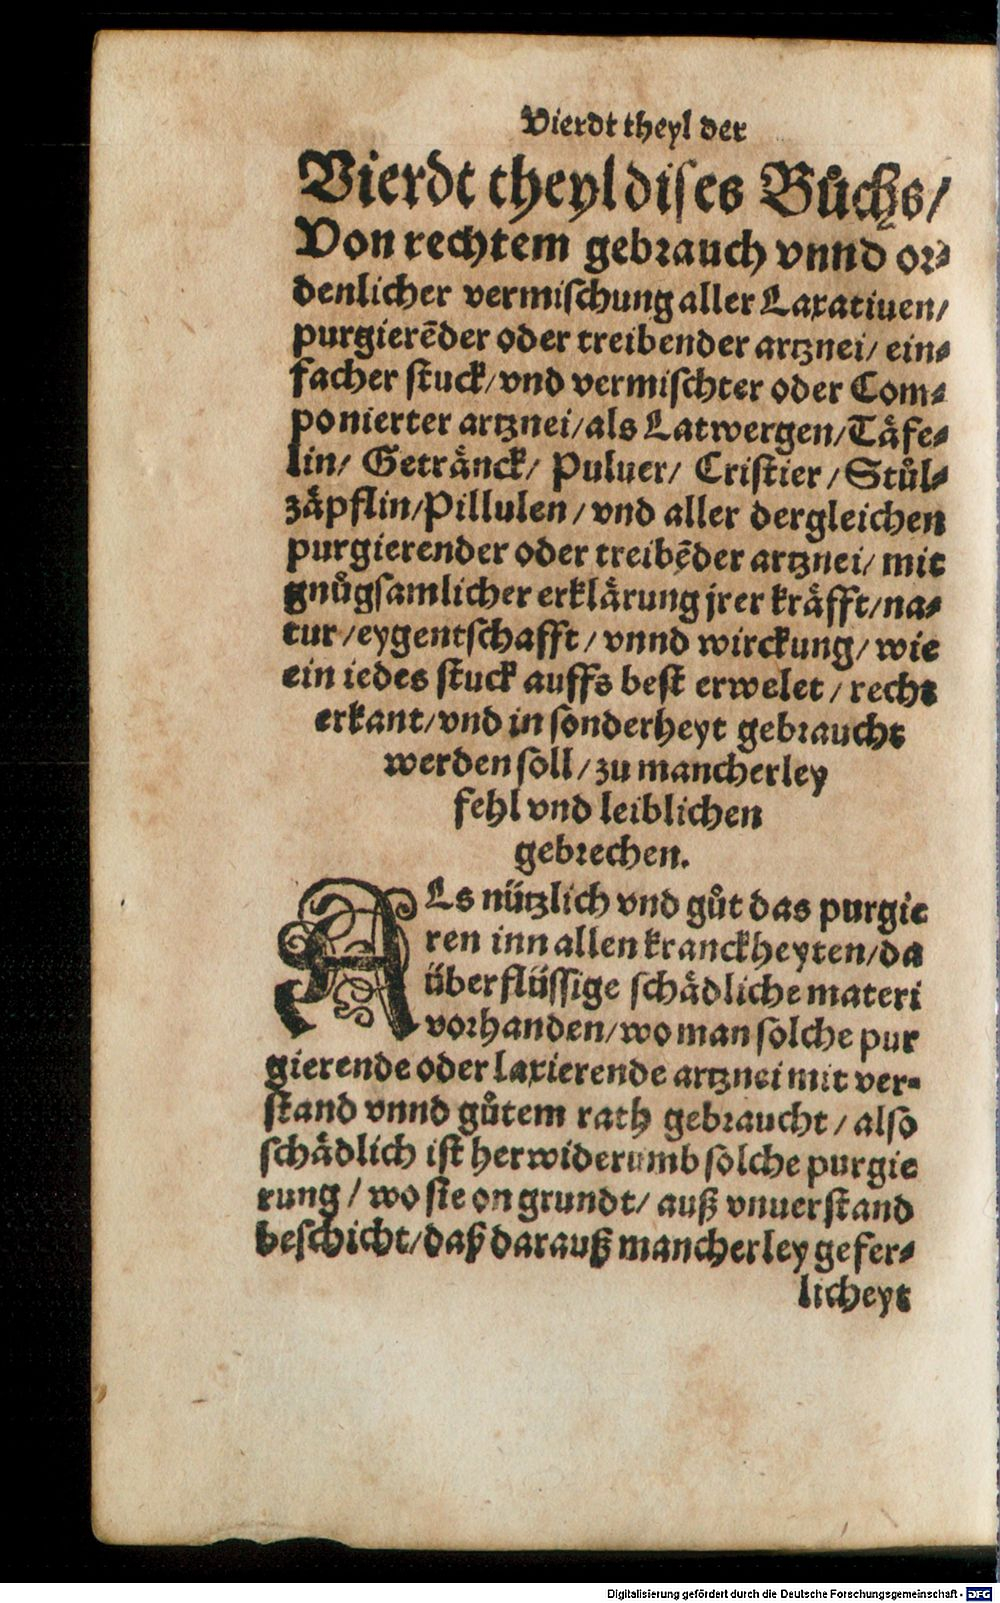 Vierdt theyl der
Vierdt theyl dises Bůchs/
Von rechtem gebrauch vnnd or-
denlicher vermischung aller Laxatiuen/
purgierẽder oder treibender artznei/ ein-
facher stuck/ vnd vermischter oder Com-
ponierter artznei/ als Latwergen/ Täfe-
lin/ Getränck/ Puluer/ Cristier/ Stůl-
zäpflin/ Pillulen/ vnd aller dergleichen
purgierender oder treibẽder artznei/ mit
gnůgsamlicher erklärung jrer kräfft/ na-
tur/ eygentschafft/ vnnd wirckung/ wie
ein iedes stuck auffs best erwelet/ recht
erkant/ vnd in sonderheyt gebraucht
werden soll/ zu mancherley
fehl vnd leiblichen
gebrechen.
ALs nützlich vnd gůt das purgie
ren inn allen kranckheyten/ da
überflüssige schädliche materi
vorhanden/ wo man solche pur
gierende oder laxierende artznei mit ver-
stand vnnd gůtem rath gebraucht/ also
schädlich ist herwiderumb solche purgie
rung/ wo sie on grundt/ auß vnuerstand
beschicht/ daß darauß mancherley gefer-
licheyt
Digitalisierung gefördert durch die Deutsche Forschungsgemeinschaft - DFG